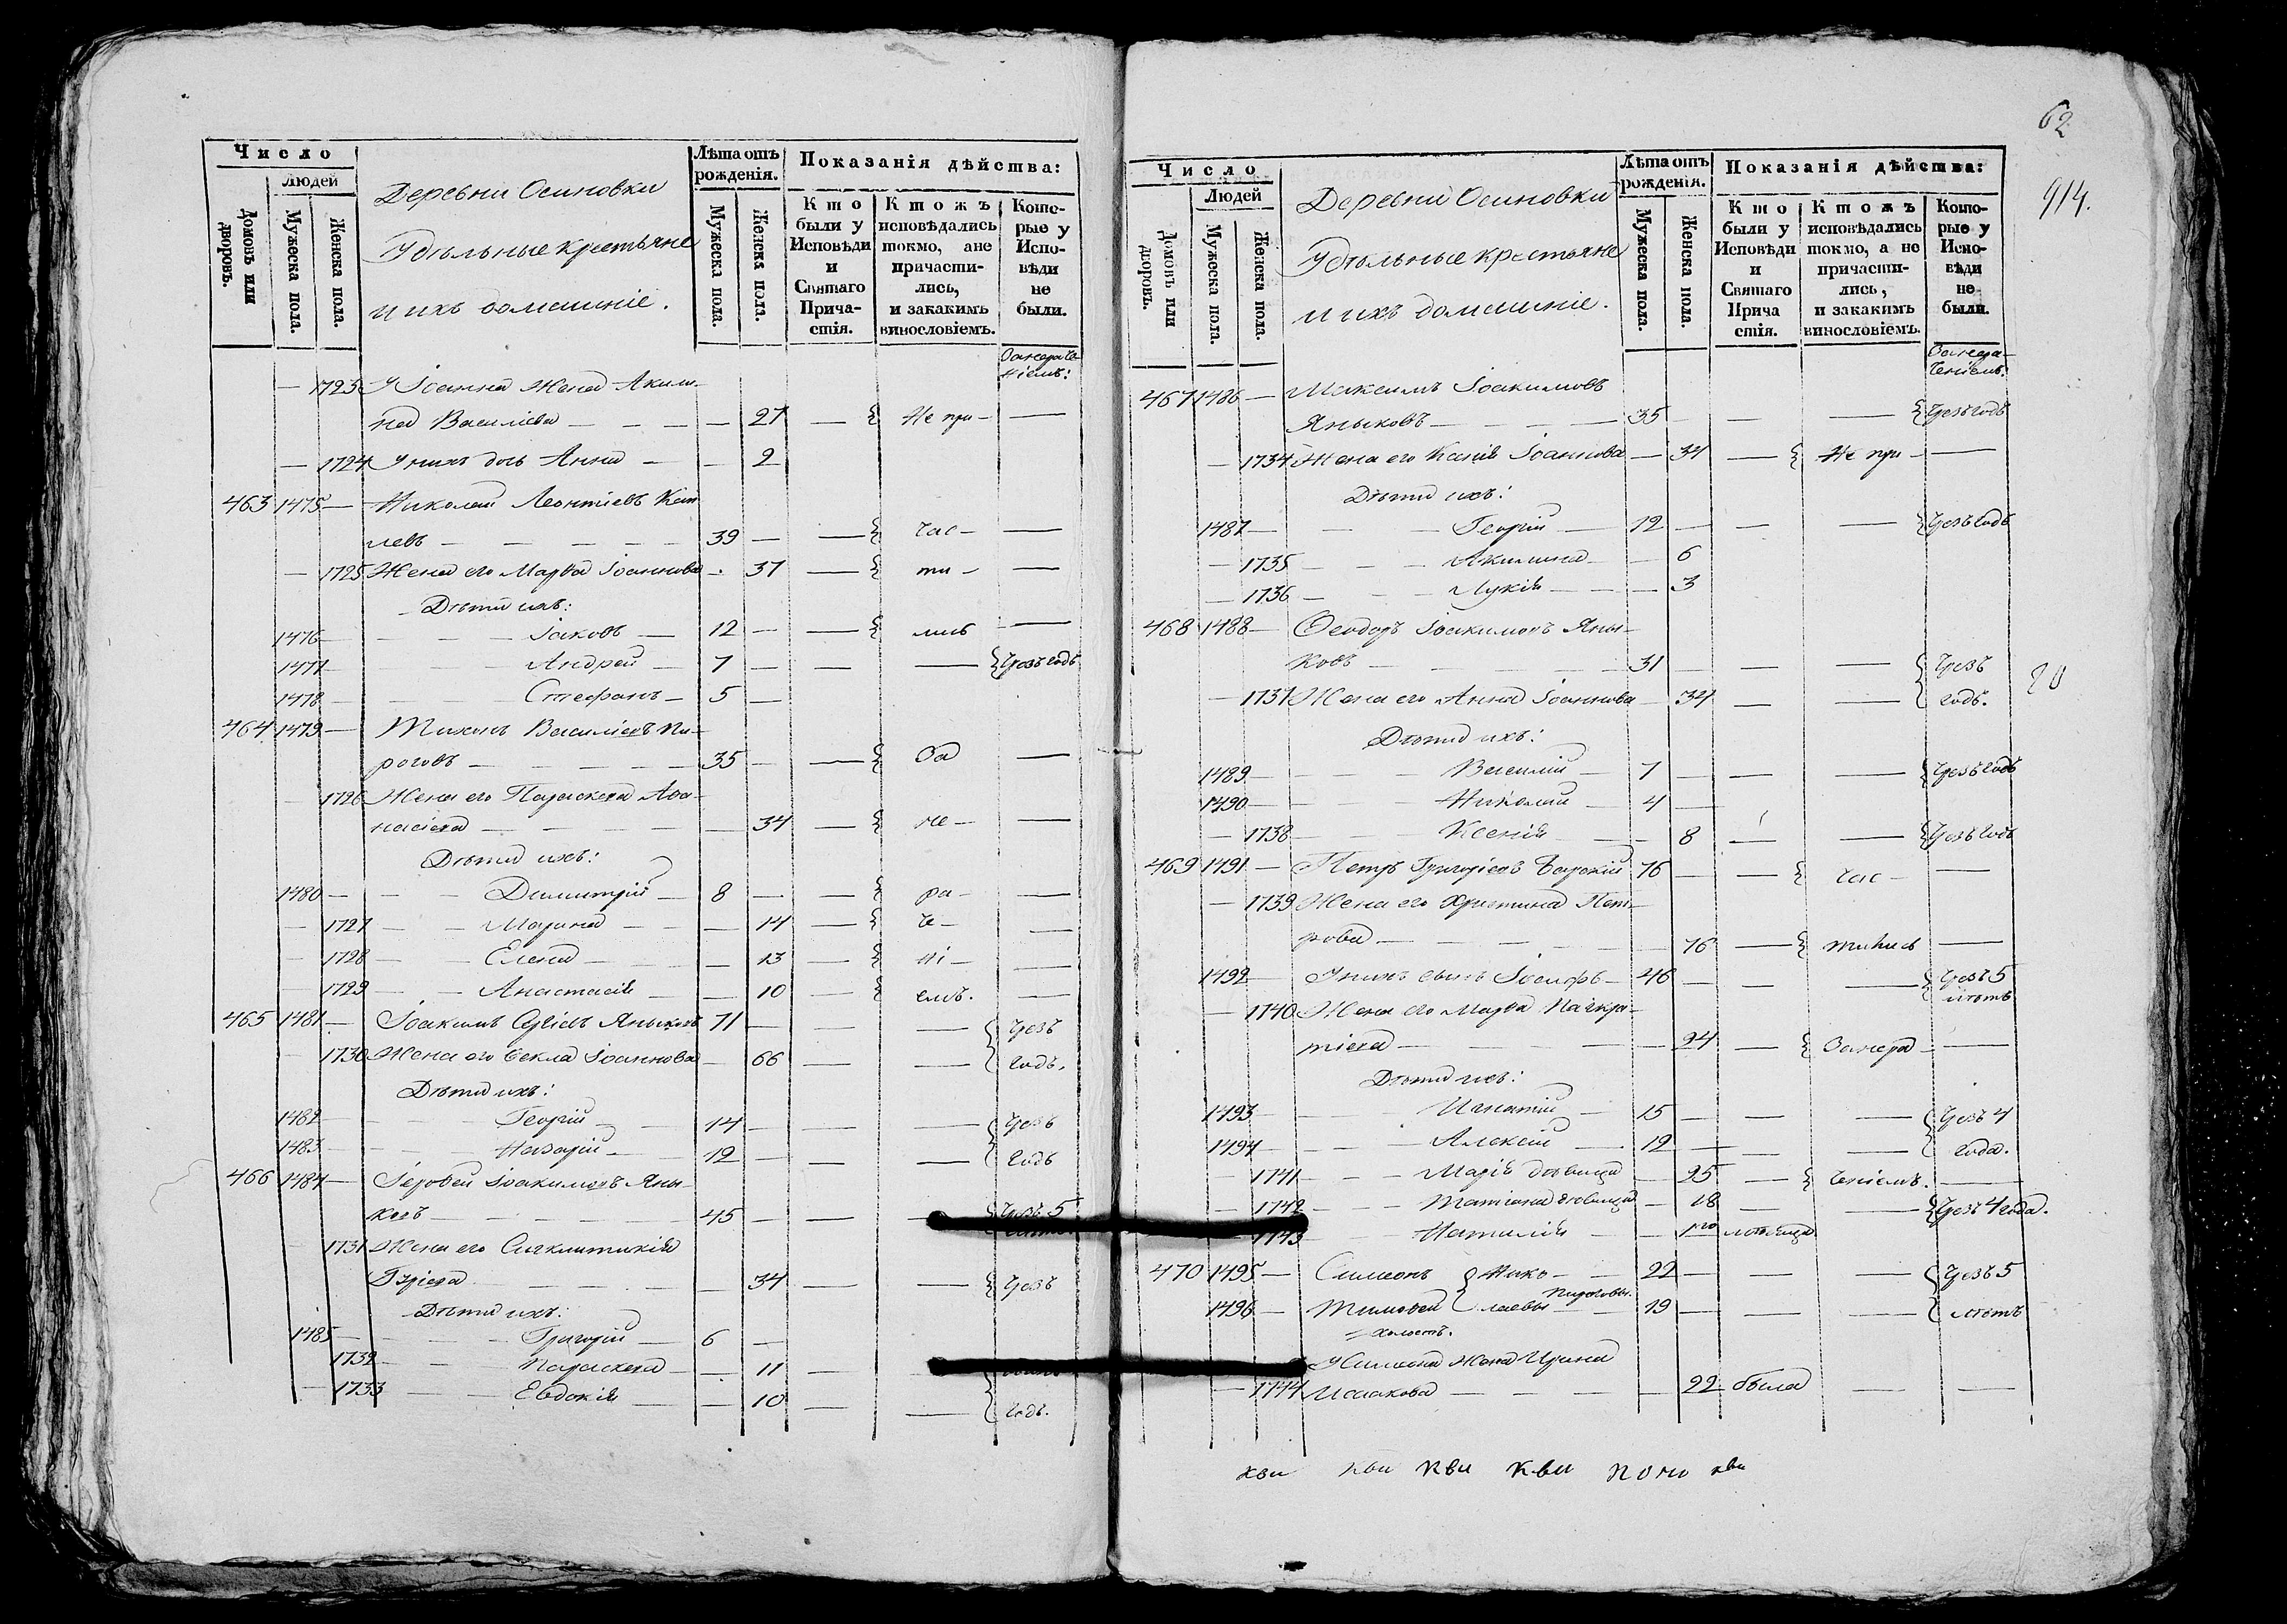 62
914.
Число
Людей
Домовъ или дворовъ.
Мужеска пола.
Женска пола.
Деревни Осиновки
Удѣльные крестьяне
и ихъ домашніе.
Лѣта отъ рожденія.
Мужеска пола.
Женска пола.
Показанія дѣйства:
Кто были у Исповѣди и Святаго Прича-стія.
Ктожъ исповѣдались токмо, ане причасти-лись, и закакимъ винословіемъ.
Кото-рые у Испо-вѣди не были.
Занерадѣ-
ніемъ:
— 1723 У Іоанна жена Акили-
на Василіева — — — — 27 — Не при- —
— 1724 У нихъ дочь Анна — — 2
463 1475 — Николай Леонтіевъ
левъ — — — — 39 — — Час- —
— 1725 Жена его Марѳа Іоаннова — 37 — ти- —
Дѣти ихъ:
1476 — — — Іаковъ — 12 — — лись —
1477 — — — Андрей — 7 — — — Чрезъ годъ
1478 — — — Стефанъ — 5 —
464 1479 — Тихонъ Василіевъ Пи-
роговъ — — — — 35 — — За —
— 1726 Жена его Параскева Аѳа-
насіева — — — — 34 — не- —
Дѣти ихъ:
1480 — — — Димитрій — 8 — — ра- —
— 1727 — — Марина — — 14 —
— 1728 — — Елена — — 13 — ні- —
— 1729 — — Анастасія — — 10 — емъ. —
465 1481 — Іоакимъ Яныковъ 71 — — — Чрезъ
— 1730 Жена его Ѳекла Іоаннова — 66 — — годъ.
Дѣти ихъ:
1482 — — — Георгій — 14 — — — Чрезъ
1483 — — — Назарій — 12 — — — годъ
466 1484 — Іеровей Іоакимовъ Яны-
ковъ — — — — 45 — — — Чрезъ 5
1731 Жена его Сигклитикія
— — — — 34 — — Чрезъ
Дѣти ихъ:
1485 — — — Григорій — 6 —
1732 — — Параскева — — 11 —
— 1733 — — Евдокія — — 10 — — годъ.
Число
Людей
Домовъ или дворовъ.
Мужеска пола.
Женска пола.
Деревни Осиновки
Удѣльные крестьяне
и ихъ домашніе.
Лѣта отъ рожденія.
Мужеска пола.
Женска пола.
Показанія дѣйства:
Кто были у Исповѣди и Святаго Прича стія.
Ктожъ исповѣдались токмо, а не причасти-лись, и закакимъ винословіемъ.
Кото-рые у Испо-вѣди не были.
Занера-
ченіемъ:
467 1486 — Максимъ Іоакимовъ
Яныковъ — — — — 35 — — — Чрезъ годъ
— 1734 Жена его Іоаннова — 34 — Не при- —
Дѣти ихъ:
1487 — — — Георгій — 12 — — — Чрезъ годъ
— 1735 — — Акилина — — 6
— 1736 — — Лукія — — 3
468 1488 — Ѳеодоръ Іоакимовъ Яны-
ковъ — — 31 — — — Чрезъ
— 1737 Жена его Анна Іоаннова — 34 — — годъ.
20
Дѣти ихъ:
1489 — — — Василій — 7 — — — Чрезъ годъ
1490 — — — Николай — 4 —
— 1738 — — Ксенія — — 8 — — Чрезъ годъ
469 1491 — Петръ Григоріевъ 76 — — Час- —
— 1739 Жена его Христина Пет-
рова — — — — 76 — тились —
1492 — У нихъ сынъ Іосифъ — 46 — — — Чрезъ 5
лѣтъ
— 1740 Жена его Марѳа Панкра-
тіева — — — — Занера- —
Дѣти ихъ:
1493 — — — Игнатій — 15 — — — Чрезъ 4
1494 — — — Алексій — 12 — — — года.
— 1741 — — Марія дѣвица — 25 — ченіемъ. —
— 1742 — — Татіана дѣвица — 18 — — Чрезъ 4 года.
1743 — — Наталія —
470 1495 — Симеонъ Нико- — 22 — — — Чрезъ 5
1496 — Тимоѳей лаевы Пироговы. — 19 — — — лѣтъ
холостъ.
У Симеона жена Ирина
— 1744 Исаакова — — — — 22 была — —
кви кви кви кви кви